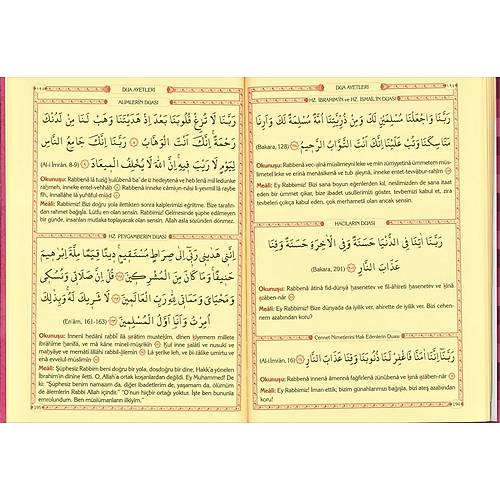 DUA AYETLERİ
HZ. İBRAHİM'İN ve HZ. İSMAİL'İN DUASI
رَبَّنَا وَاجْعَلْنَا مُسْلِمَيْنِ لَكَ وَمِنْ ذُرِّيَّتِنَا اُمَّةً مُسْلِمَةً لَكَ وَاَرِنَا
مَنَاسِكَنَا وَتُبْ عَلَيْنَا اِنَّكَ اَنْتَ التَّوَّابُ الرَّحِيمُ (Bakara, 128)
Okunuşu: Rabbenâ vec-alnâ müslimeyni leke ve min zürriyyetinâ ümmetem müs-
limetel leke ve erinâ menâsikenâ ve tub aleynâ, inneke entet-tevvâbur-rahîm
Meâli: Ey Rabbimiz! Bizi sana boyun eğenlerden kıl, neslimizden de sana itaat
eden bir ümmet çıkar, bize ibadet usullerimizi göster, tevbemizi kabul et, zira
tevbeleri çokça kabul eden, çok merhametli olan ancak sensin.
HACILARIN DUASI
رَبَّنَا اٰتِنَا فِى الدُّنْيَا حَسَنَةً وَفِى الْاٰخِرَةِ حَسَنَةً وَقِنَا
عَذَابَ النَّارِ (Bakara, 201)
Okunuşu: Rabbenâ âtinâ fid-dünyâ hasenetev ve fil-âhireti hasenetev ve kınâ
azâben-nâr
Meâli: Ey Rabbimiz! Bize dünyada da iyilik ver, ahirette de iyilik ver. Bizi cehen-
nem azabından koru!
Cennet Nimetlerini Hak Edenlerin Duası
رَبَّنَا اِنَّنَا اٰمَنَّا فَاغْفِرْ لَنَا ذُنُوبَنَا وَقِنَا عَذَابَ النَّارِ (Al-i İmrân, 16)
Okunuşu: Rabbenâ innenâ âmennâ fağfirlenâ zünûbenâ ve kınâ azâben-nâr
Meâli: Ey Rabbimiz! İman ettik; bizim günahlarımızı bağışla, bizi ateş azabından
koru!
194
DUA AYETLERİ
ALİMLERİN DUASI
رَبَّنَا لَا تُزِغْ قُلُوبَنَا بَعْدَ اِذْ هَدَيْتَنَا وَهَبْ لَنَا مِنْ لَدُنْكَ
رَحْمَةً اِنَّكَ اَنْتَ الْوَهَّابُ رَبَّنَا اِنَّكَ جَامِعُ النَّاسِ
لِيَوْمٍ لَا رَيْبَ فِيهِ اِنَّ اللّٰهَ لَا يُخْلِفُ الْمِيعَادَ (Al-i İmrân, 8-9)
Okunuşu: Rabbenâ lâ tuziğ kulûbenâ ba'de iz hedeytenâ ve heb lenâ mil ledunke
rahmeh, inneke entel-vehhâb Rabbenâ inneke câmiun-nâsi li-yevmil lâ raybe
fîh, innallâhe lâ yuhliful-mîâd
Meâli: Rabbimiz! Bizi doğru yola ilettikten sonra kalplerimizi eğriltme. Bize tarafın-
dan rahmet bağışla. Lütfu en olan sensin. Rabbimiz! Gelmesinde şüphe edilmeyen
bir günde, insanları mutlaka toplayacak olan sensin. Allah asla sözünden dönmez.
HZ. PEYGAMBERİN DUASI
اِنَّنِى هَدٰينِى رَبِّى اِلٰى صِرَاطٍ مُسْتَقِيمٍ دِينًا قِيَمًا مِلَّةَ اِبْرٰهِيمَ
حَنِيفًا وَمَا كَانَ مِنَ الْمُشْرِكِينَ قُلْ اِنَّ صَلَاتِى وَنُسُكِى
وَمَحْيَاىَ وَمَمَاتِى لِلّٰهِ رَبِّ الْعَالَمِينَ لَا شَرِيكَ لَهُ وَبِذٰلِكَ
اُمِرْتُ وَاَنَا اَوَّلُ الْمُسْلِمِينَ (En'âm, 161-163)
Okunuşu: İnnenî hedânî rabbî ilâ sırâtım mustekîm, dînen kıyemem millete
ibrâhîme hanîfâ, ve mâ kâne minel-müşrikîn Kul inne salâtî ve nusukî ve
mahyâye ve memâtî lillâhi rabbil-âlemîn Lâ şerîke leh, ve bi-zâlike umirtu ve
ene evvelul-müslimîn
Meâli: Şüphesiz Rabbim beni doğru bir yola, dosdoğru bir dine, Hakk'a yönelen
İbrahim'in dinine iletti. O, Allah'a ortak koşanlardan değildi. Ey Muhammed! De
ki: "Şüphesiz benim namazım da, diğer ibadetlerim de, yaşamam da, ölümüm
de âlemlerin Rabbi Allah içindir." "O'nun hiçbir ortağı yoktur. İşte ben bununla
emrolundum. Ben müslümanların ilkiyim."
195